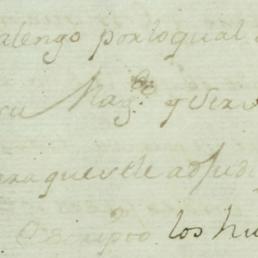 alengo por lo qual
su Mag.d y Serv
para que se le adjudi
los hu